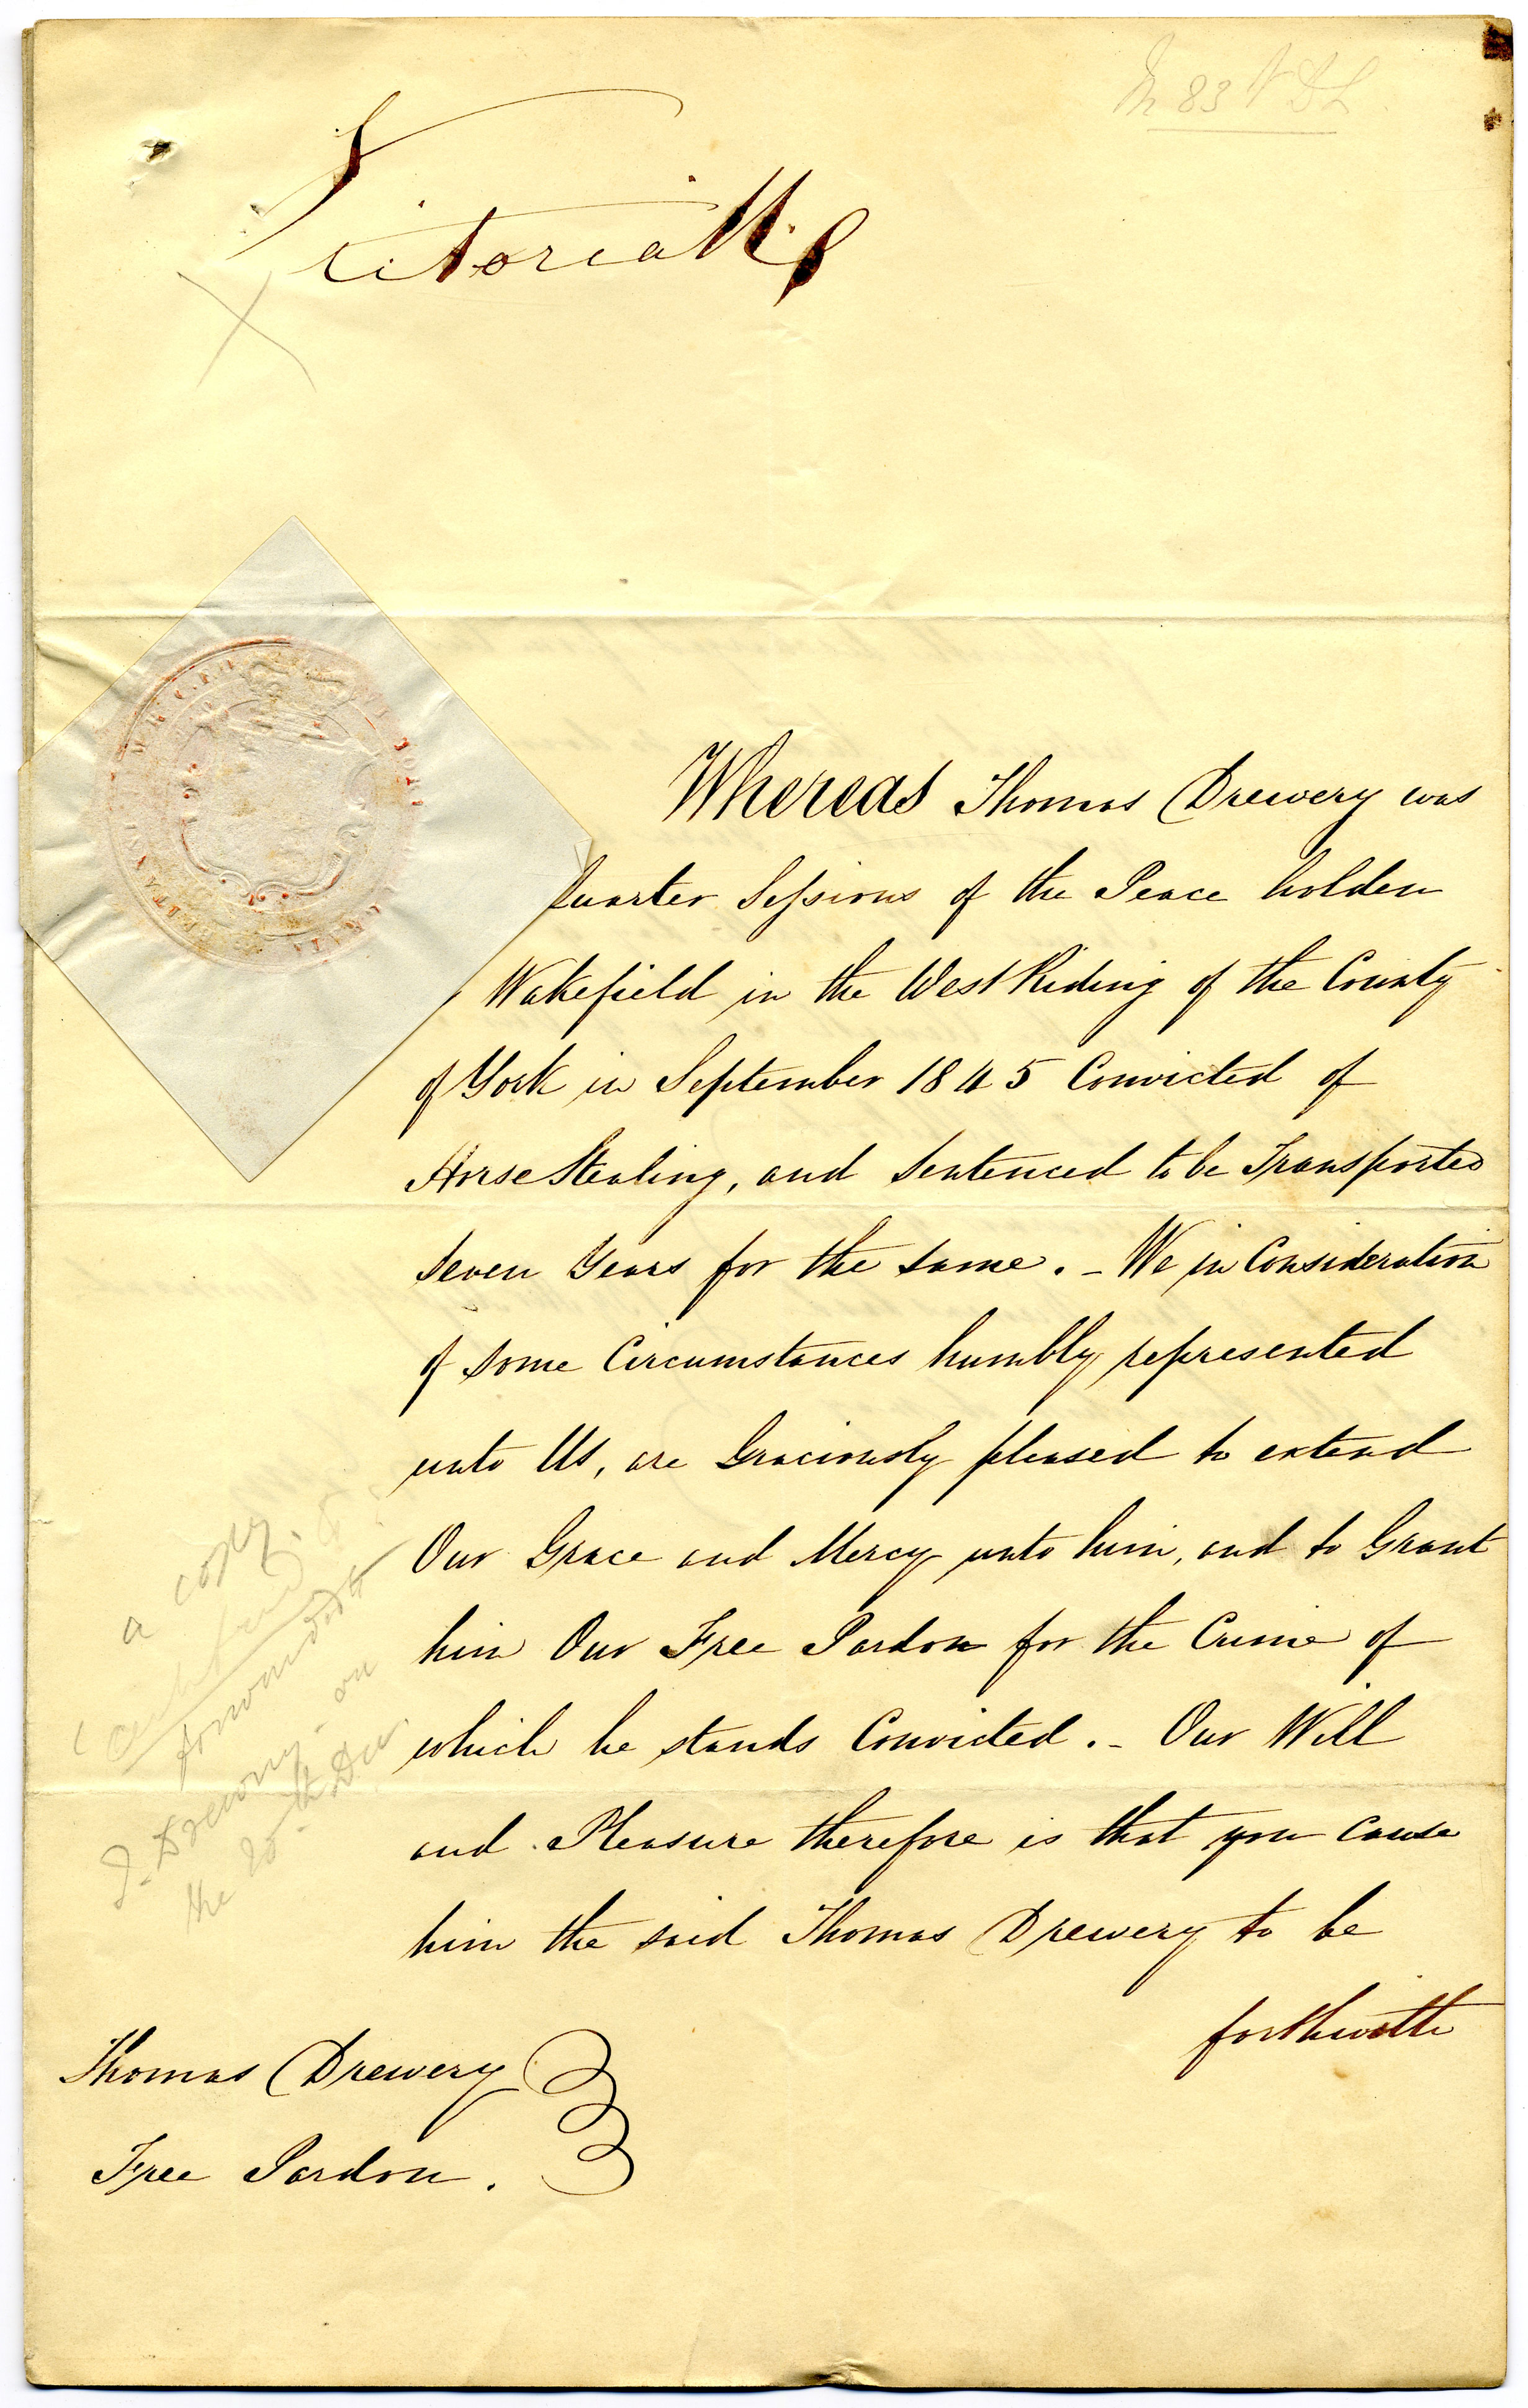 Victoria R
Whereas Thomas Drewery was
Quarter Sessions of the Peace holden
Wakefield in the West Riding of the County
of York in September 1845 Convicted of
Horse Stealing, and Sentenced to be Transported
Seven Years for the same. - We in Consideration
of some Circumstances humbly represented
unto Us, are Graciously pleased to extend
Our Grace and Mercy unto him, and to Grant
him Our Free Pardon for the Crime of
which he stands Convicted. - Our Will
and Pleasure therefore is that you cause
him the said Thomas Drewery to be
forthwith
a copy
forwarded to
T. Drewery on
the 20th Decr.
Thomas Drewery
Free Pardon.